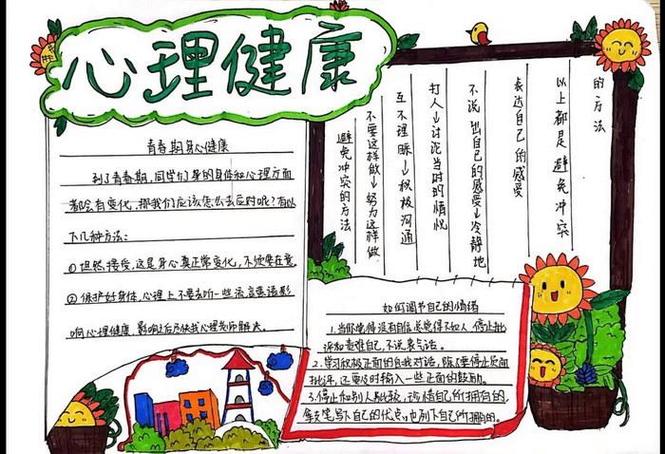 心理健康
青春期身心健康
到了青春期,同学们身的身体和心理方面
都会有变化,那我们应该怎么去应对呢?有以
下几种方法:
①坦然接受,这是身心真正常变化,不须要在意
②保护好身体,心理上不要去听一些流言蜚语影
响心理健康,影响之后尽快找心理老师解决。
避免冲突的方法
不要这样做→努力这样做
互不理睬→积极沟通
打人→讨论当时的情况
不说出自己的感受→冷静地
表达自己的感受
以上都是避免冲突
的方法
如何调节自己的情绪
1.当你觉得没有自信,总觉得不如人,停止批
评和责难自己,不说丧气话。
2.学习积极正面的自我对话,既要停止负面
批评,还要及时输入一些正面的鼓励。
3.停止和别人比较,珍惜自己所拥有的,
拿支笔写下自己的优点,也列下自己所拥有的。